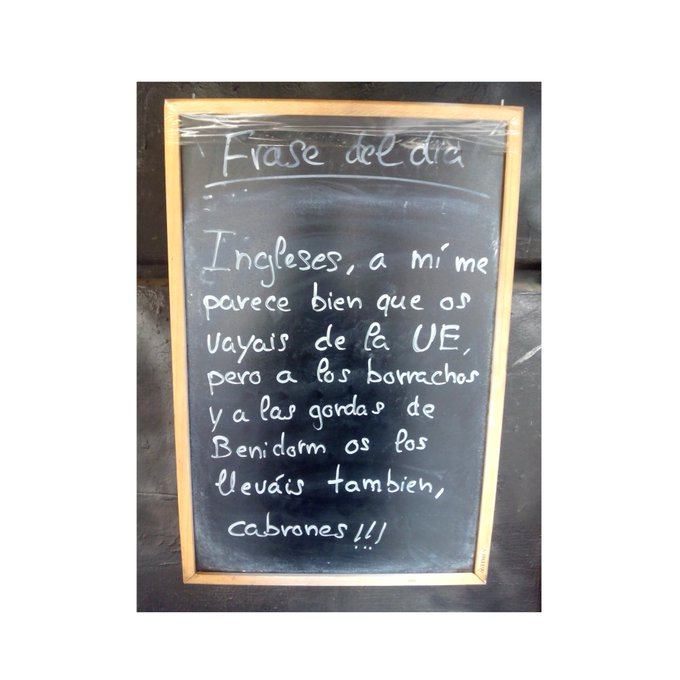 Frase del día
Ingleses, a mí me
parece bien que os
vayais de la UE,
pero a los borrachos
y a las gordas de
Benidorm os los
lleváis tambien,
cabrones!!!